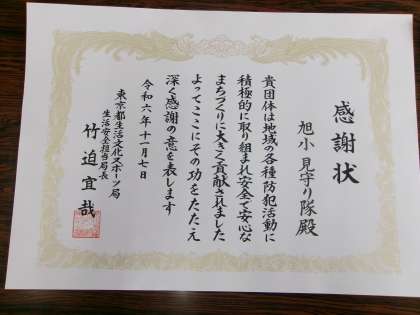 感謝状
旭小見守り隊殿
貴団体は地域の各種防犯活動に
積極的に取り組まれ安全で安心な
まちづくりに大きく貢献されました
よってここにその功をたたえ
深く感謝の意を表します
令和六年十一月七日
東京都生活文化スポーツ局
生活安全担当局長
竹迫宜哉